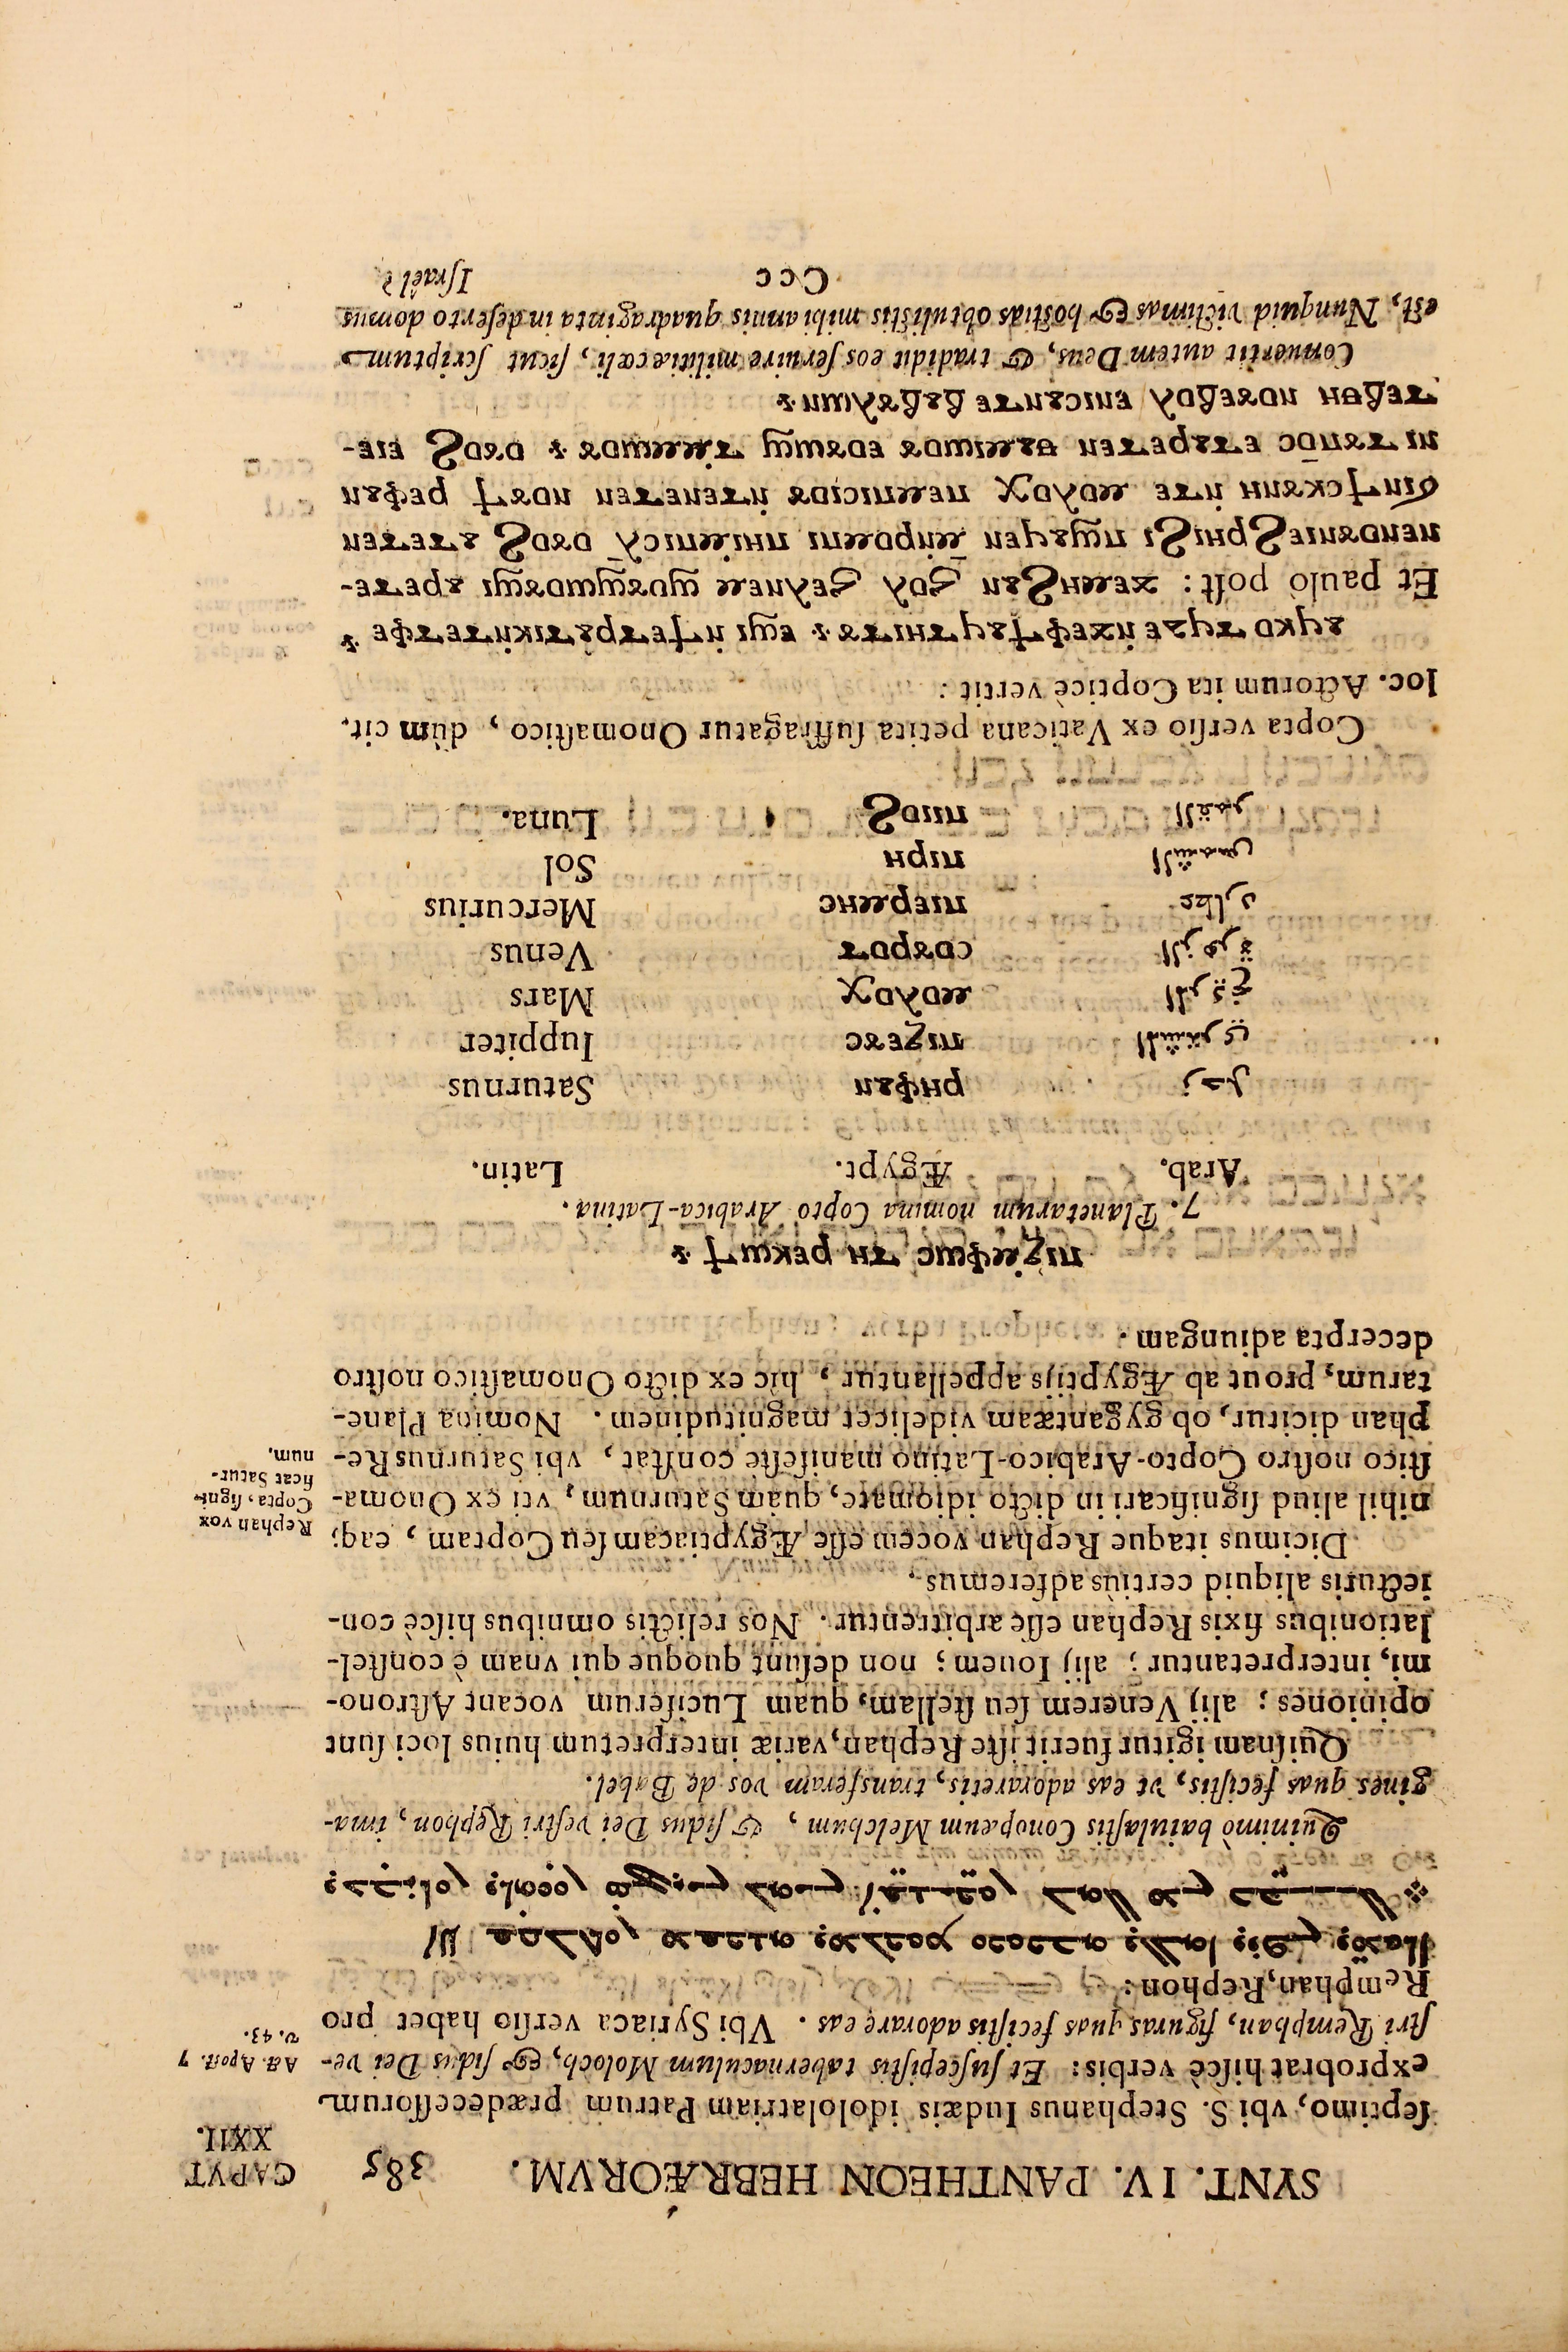 SYNT. IV. PANTHEON HEBRÆORVM. 385
CAPVT
XXII.
ſeptimo, vbi S. Stephanus Iudæis idololatriam Patrum prædeceſſorum
exprobrat hiſcè verbis: Et ſuſcepiſtis tabernaculum Moloch, & ſidus Dei ve-
Act. Apoſt. 7
v. 43.
ſtri Remphan, figuras quas feciſtis adorare eas. Vbi Syriaca verſio habet pro
Remphan, Rephon:
ܐܠܐ ܫܩܠܬܘܢ ܡܫܟܢܗ ܕܡܠܟܘܡ ܘܟܘܟܒܗ ܕܐܠܗܐ ܕܪܦܢ ܨܠܡܐ
ܕܥܒܕܬܘܢ ܕܬܗܘܘܢ ܣܓܕܝܢ ܠܗܘܢ ܐܫܢܝܟܘܢ ܠܗܠ ܡܢ ܒܒܠ
Quinimò baiulaſtis Conopæum Melchum, & ſidus Dei veſtri Rephon, ima-
gines quas feciſtis, vt eas adoraretis, transferam vos de Babel.
Quiſnam igitur fuerit iſte Rephan, variæ interpretum huius loci ſunt
opiniones; alij Venerem ſeu ſtellam, quam Luciferum vocant Aſtrono-
mi, interpretantur; alij Iouem; non deſunt quoque qui vnam è conſtel-
lationibus fixis Rephan eſſe arbitrentur. Nos relictis omnibus hiſcè con-
iecturis aliquid certiùs adferemus.
Dicimus itaque Rephan vocem eſſe Ægyptiacam ſeu Coptam, eaq;
Rephan vox
Copta, ſigni-
ficat Satur-
num.
nihil aliud ſignificari in dicto idiomate, quàm Saturnum, vti ex Onoma-
ſtico noſtro Copto-Arabico-Latino manifeſtè conſtat, vbi Saturnus Re-
phan dicitur, ob gygantæam videlicet magnitudinem. Nomina Plane-
tarum, prout ab Ægyptijs appellantur, hìc ex dicto Onomaſtico noſtro
decerpta adiungam.
7. Planetarum nomina Copto Arabica-Latina.
Arab. Ægypt. Latin.
زحل ⲣⲏⲫⲁⲛ Saturnus
المشتري ⲡⲓⲍⲉⲩⲥ Iuppiter
المريخ ⲙⲟⲗⲟⲭ Mars
الزهرة ⲥⲟⲩⲣⲟⲧ Venus
عطارد ⲡⲓⲉⲣⲙⲏⲥ Mercurius
الشمس ⲡⲓⲣⲏ Sol
القمر ⲡⲓⲓⲟϩ Luna.
Copta verſio ex Vaticana petita ſuffragatur Onomaſtico, dùm cit.
loc. Actorum ita Copticè vertit:
Et paulò poſt:
Conuertit autem Deus, & tradidit eos ſeruire militiæ cœli, ſicut ſcriptum
eſt, Nunquid victimas & hoſtias obtuliſtis mihi annis quadraginta in deſerto domus
Ccc Iſraël?